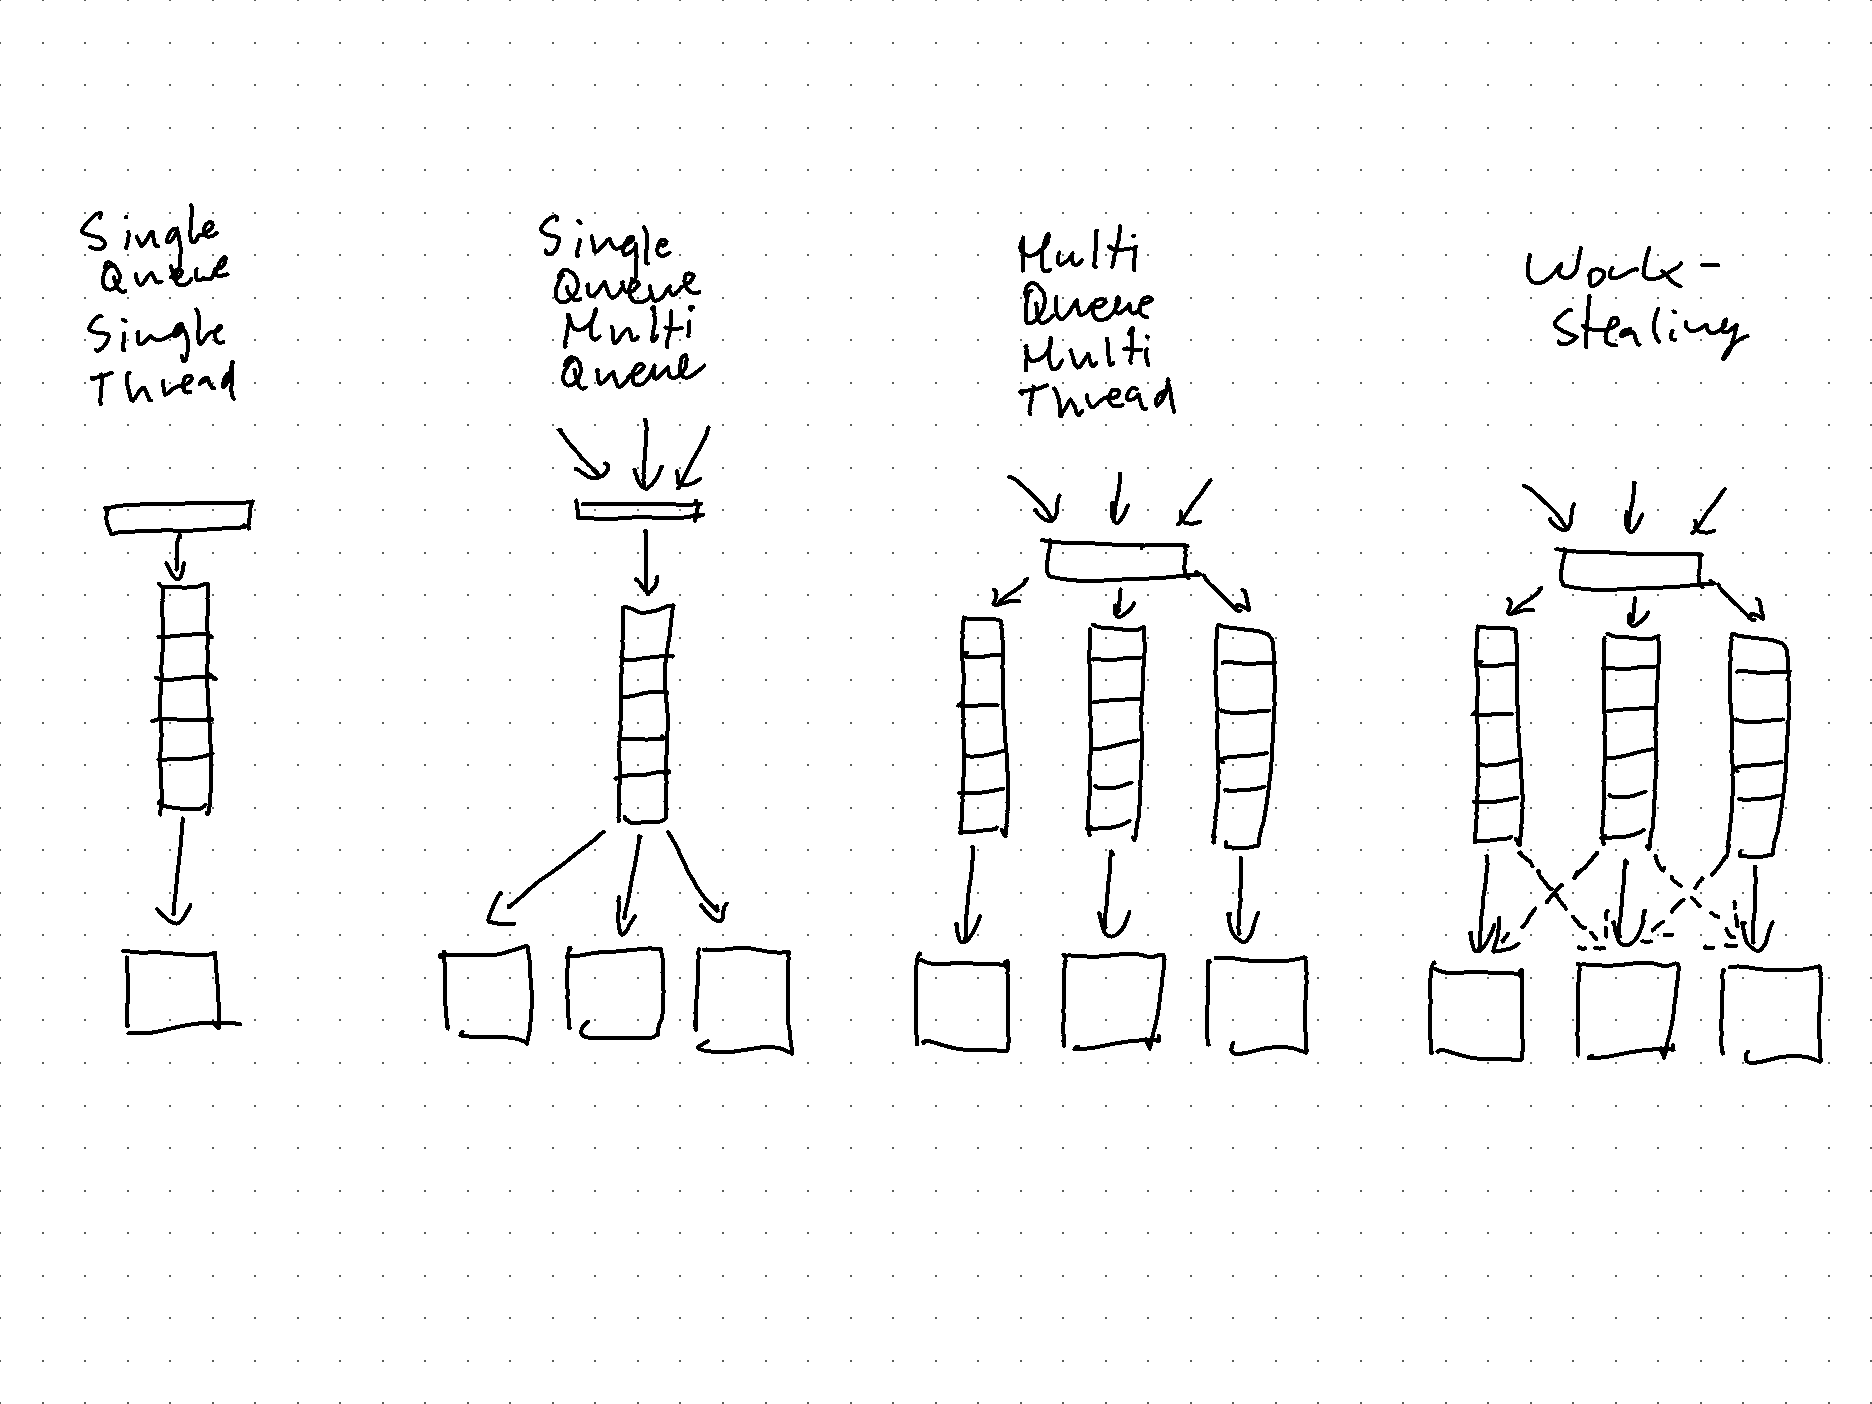 Single
Queue
Single
Thread
Single
Queue
Multi
Queue
Multi
Queue
Multi
Thread
Work-
Stealing